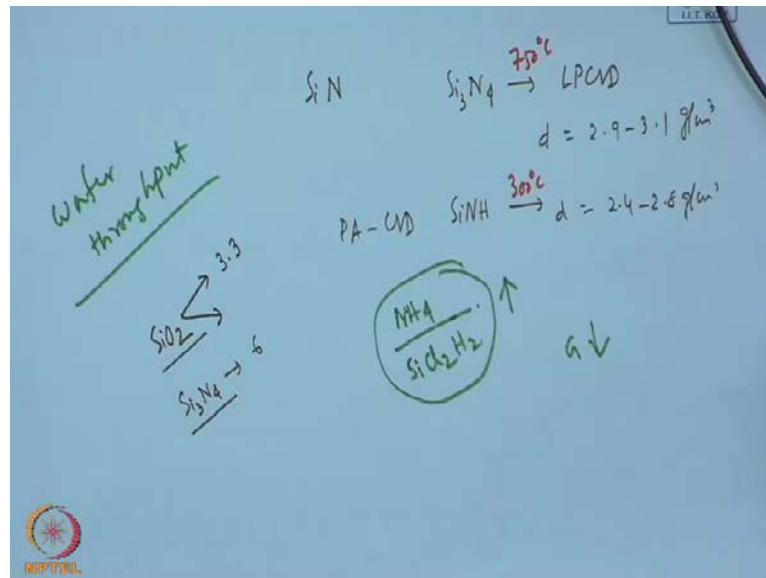 I.I.T. KGP
SiN Si3N4 750°C → LPCVD
d = 2.9-3.1 g/cm³
wafer
throughput
PA-CVD SiNH 300°C → d = 2.4-2.8 g/cm³
3.3
SiO2
Si3N4 → 6
NH4
SiCl2H2
↑
G ↓
NPTEL